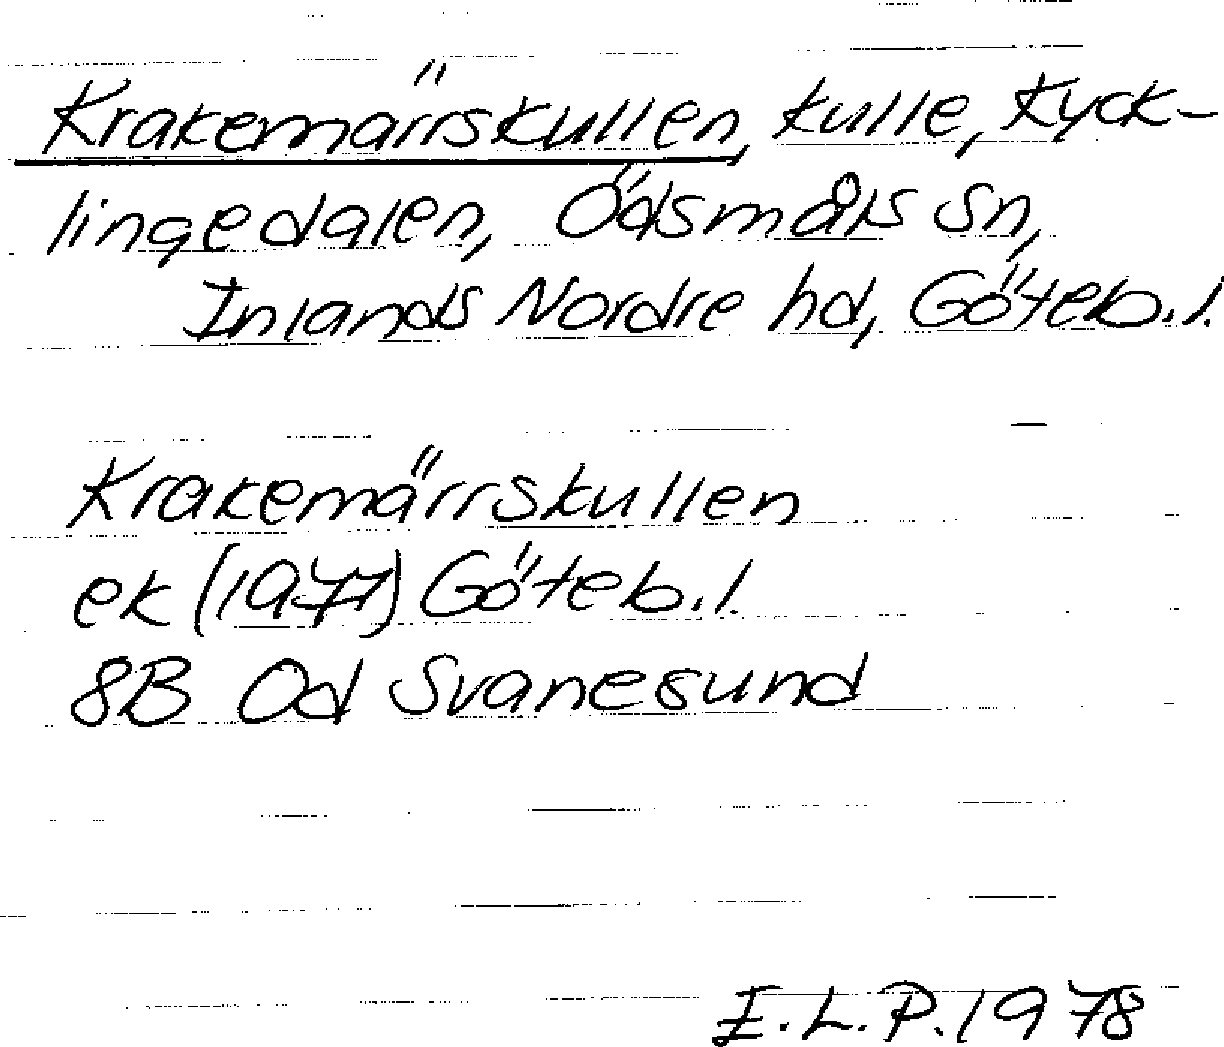 Krakemärrskullen, kulle, Kyck-
lingedalen, Ödsmåls sn,
Inlands Nordre hd, Göteb.l.
Krakemärrskullen
ek (1977) Göteb.l.
8B Od Svanesund
E.L.P. 1978